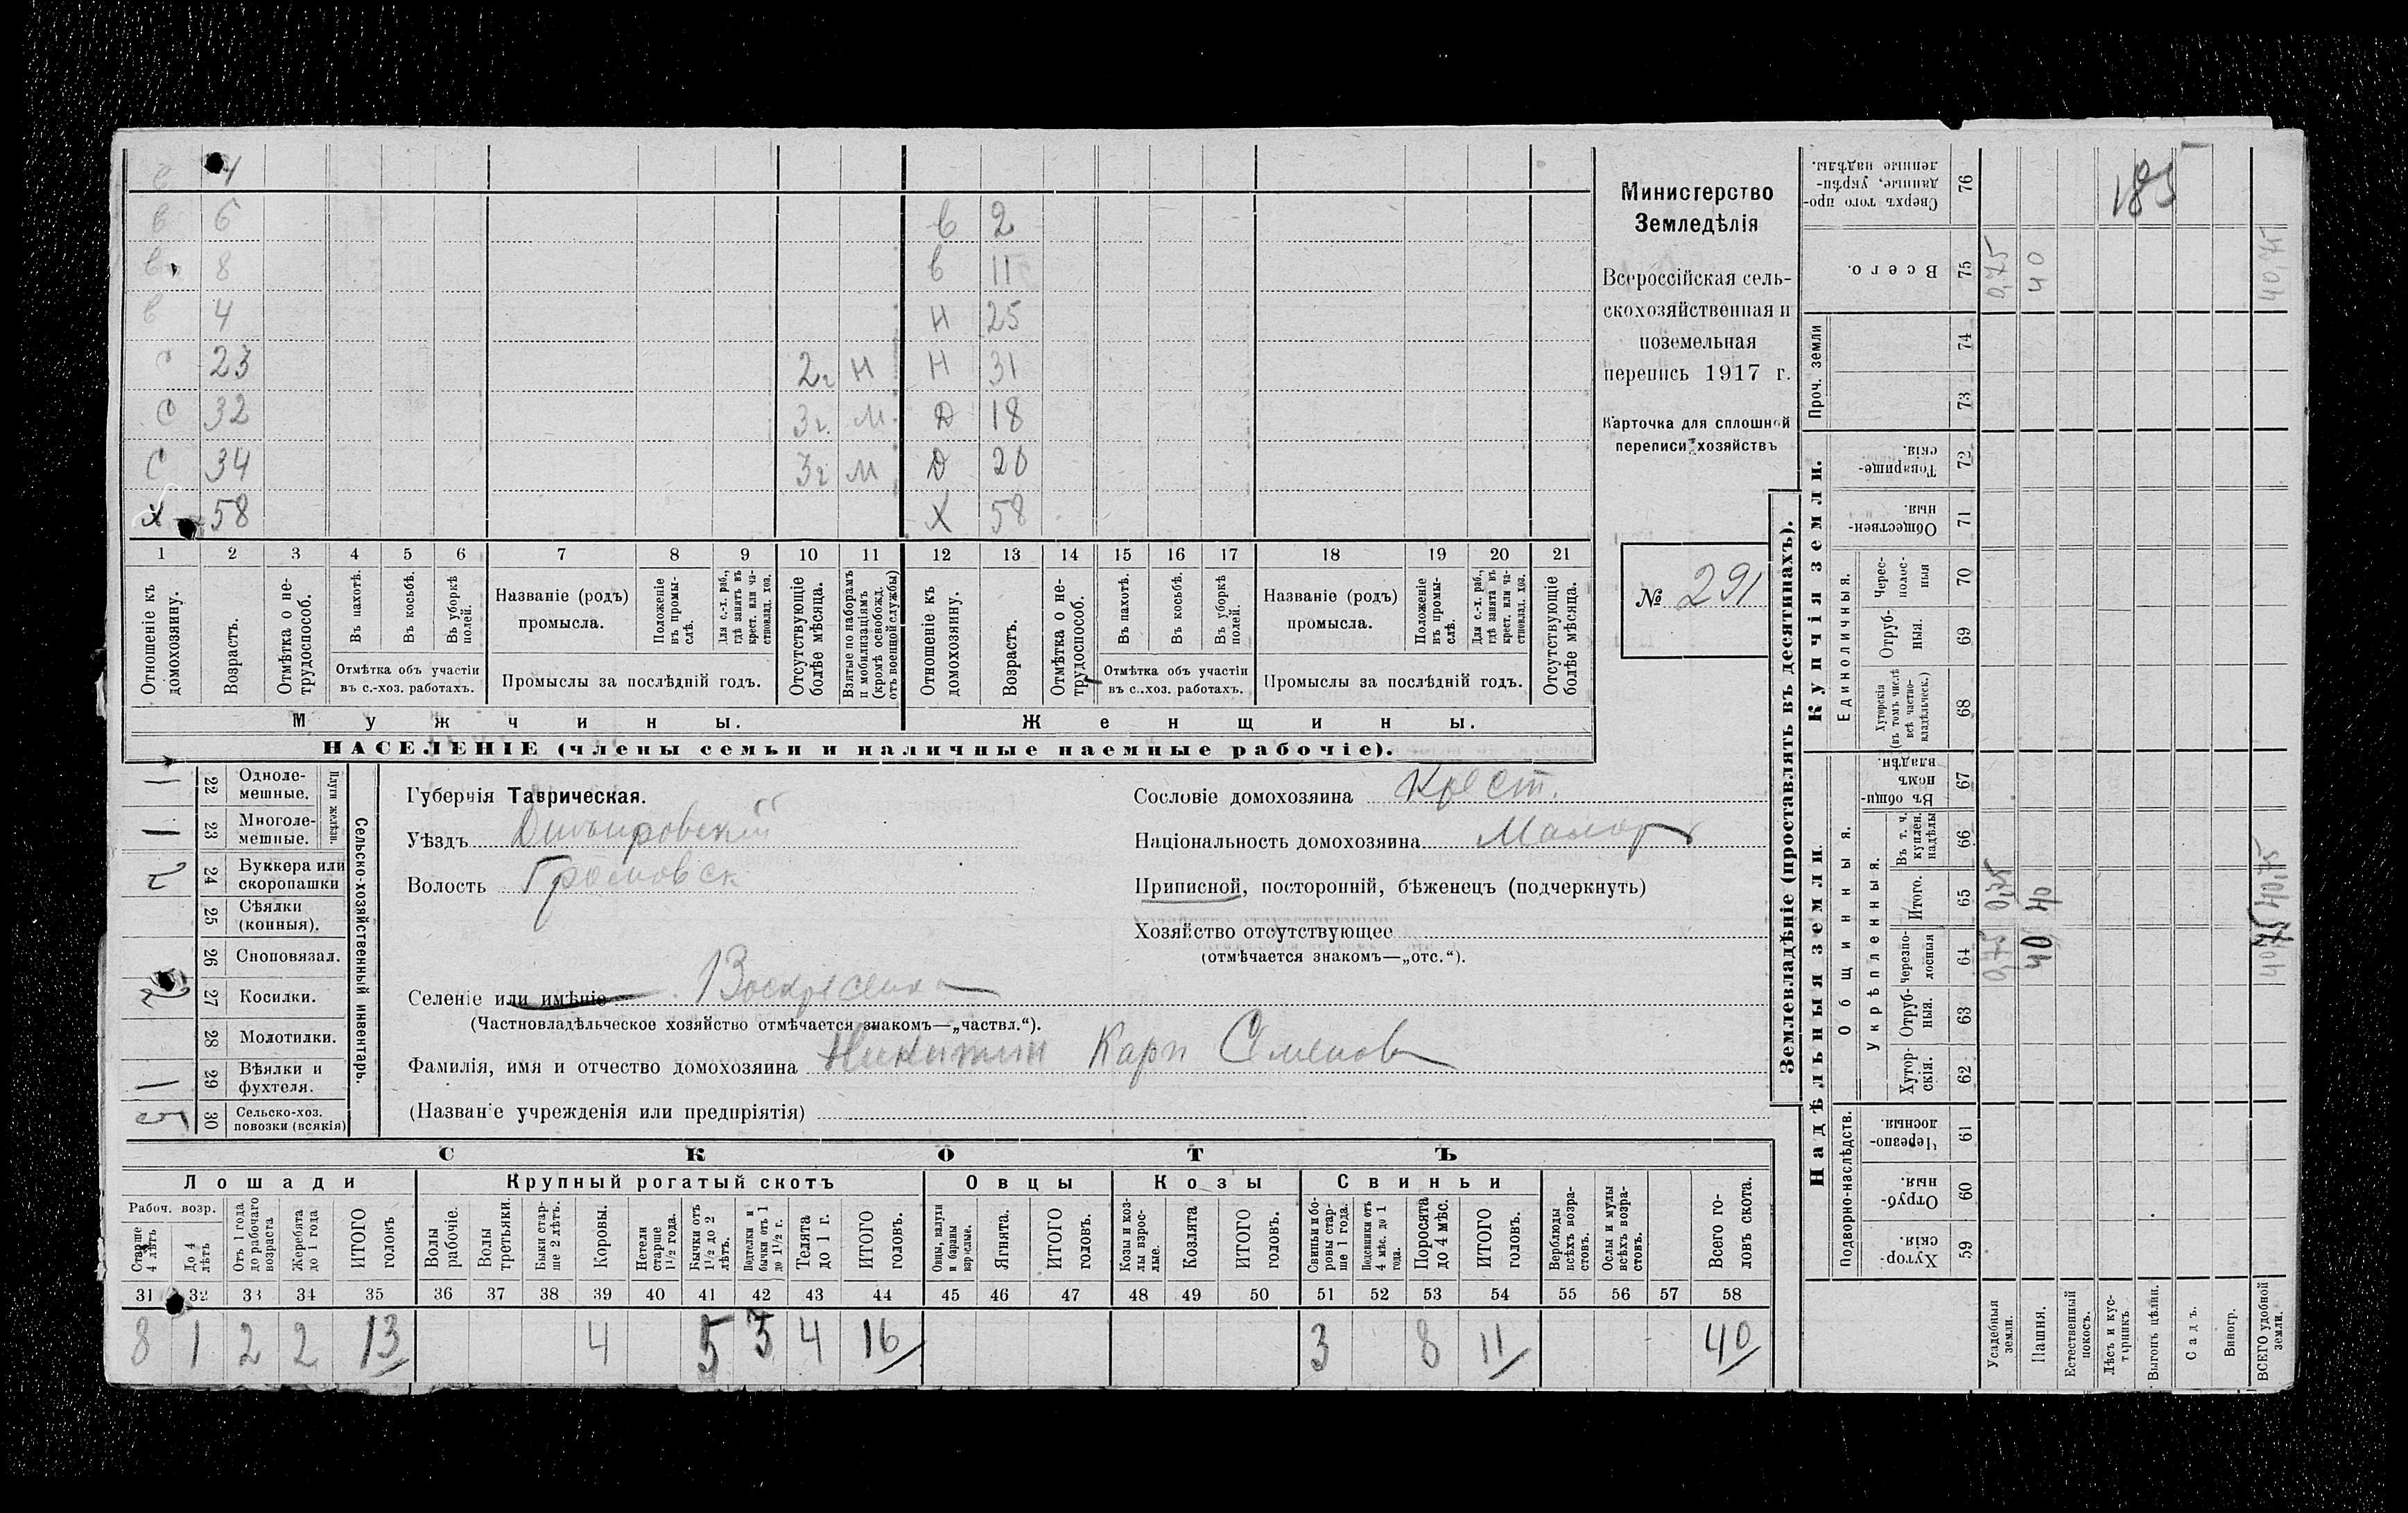 в 4
в 6 в 2
в 8 в 11
в 4 Н 25
с 23 2г Н Н 31
С 32 3г. М Д 18
С 34 3г М Д 20
Х 58 Х 58
1 2 3 4 5 6 7 8 9 10 11 12 13 14 15 16 17 18 19 20 21
Отношеніе къ домохозяину.
Возрастъ.
Отмѣтка о не-
трудоспособ.
Въ пахотѣ.
Въ косьбѣ.
Въ уборкѣ полей.
Отмѣтка объ участіи
въ с.-хоз. работахъ.
Названіе (родъ)
промысла.
Положеніе въ промы-
слѣ.
Для с.-х. раб.,
гдѣ занятъ въ
крест. или ча-
стновлад. хоз.
Промыслы за послѣдній годъ.
Отсутствующіе
болѣе мѣсяца.
Взятые по наборамъ
и мобилизаціямъ
(кромѣ освобожд.
отъ военной службы)
Отношеніе къ
домохозяину.
Возрастъ.
Отмѣтка о не-
трудоспособ.
Въ пахотѣ.
Въ косьбѣ.
Въ уборкѣ полей.
Отмѣтка объ участіи
въ с.-хоз. работахъ.
Названіе (родъ)
промысла.
Положеніе въ промы-
слѣ.
Для с.-х. раб.,
гдѣ занята въ
крест. или ча-
стновлад. хоз.
Промыслы за послѣдній годъ.
Отсутствующіе
болѣе мѣсяца.
Мужчины.
Женщины.
НАСЕЛЕНІЕ (члены семьи и наличные наемные рабочіе).
Министерство
Земледѣлія
Всероссійская сель-
скохозяйственная и
поземельная
перепись 1917 г.
Карточка для сплошной
переписи хозяйствъ
№ 291
1 22 Одноле-
мешные.
1 23 Многоле-
мешные.
Плуги желѣзн.
2 24 Буккера или
скоропашки
25 Сѣялки
(конныя).
26 Сноповязал.
2 27 Косилки.
28 Молотилки.
1 29 Вѣялки и
фухтеля.
5 30 Сельско-хоз.
повозки (всякія)
Сельско-хозяйственный инвентарь.
Губернія Таврическая.
Уѣздъ Днѣпровскій
Волость Громовск
Селеніе или имѣніе Воскресенка
(Частновладѣльческое хозяйство отмѣчается знакомъ—„частвл.“).
Фамилія, имя и отчество домохозяина Никитин Карп Семенов
(Названіе учрежденія или предпріятія)
Сословіе домохозяина Крест.
Національность домохозяина Малор
Приписной, посторонній, бѣженецъ (подчеркнуть)
Хозяйство отсутствующее
(отмѣчается знакомъ—„отс.“).
СКОТЪ
Лошади
Крупный рогатый скотъ
Овцы
Козы
Свиньи
Рабоч. возр.
Старше
4 лѣтъ
До 4
лѣтъ
Отъ 1 года
до рабочаго
возраста
Жеребята
до 1 года
ИТОГО
головъ
Волы
рабочіе.
Волы
третьяки.
Быки стар-
ше 2 лѣтъ.
Коровы.
Нетели
старше
1 1/2 года.
Бычки отъ
1 1/2 до 2
лѣтъ.
Подтелки и
бычки отъ 1
до 1 1/2 г.
Телята
до 1 г.
ИТОГО
головъ.
Овцы, валухи
и бараны
взрослые.
Ягнята.
ИТОГО
головъ.
Козы и коз-
лы взрос-
лые.
Козлята
ИТОГО
головъ.
Свиньи и бо-
ровы стар-
ше 1 года.
Подсвинки отъ
4 мѣс. до 1
года.
Поросята
до 4 мѣс.
ИТОГО
головъ.
Верблюды
всѣхъ возра-
стовъ.
Ослы и мулы
всѣхъ возра-
стовъ.
Всего го-
ловъ скота.
31 32 33 34 35 36 37 38 39 40 41 42 43 44 45 46 47 48 49 50 51 52 53 54 55 56 57 58
8 1 2 2 13 4 5 3 4 16 3 8 11 40
Землевладѣніе (проставлять въ десятинахъ).
Надѣльныя земли
Купчія земли.
Проч. земли
Подворно-наслѣдств.
Общинныя.
Укрѣпленныя.
Единоличныя.
Сверхъ того про-
данные, укрѣп-
ленные надѣлы. 76 185
Всего. 75 0,75 40 40,75
74
73
Товарище-
скія. 72
Обществен-
ныя. 71
Черес-
полос-
ныя 70
Отруб-
ныя. 69
Хуторскія
(въ томъ числѣ
всѣ частно-
владѣльческ.) 68
Въ общин-
номъ
владѣн. 67
Въ т. ч.
куплен.
надѣлы 66
Итого. 65 0,75 40 40,75
Черезпо-
лосныя 64 0,75 40 40,75
Отруб-
ныя. 63
Хутор-
скія. 62
Черезпо-
лосныя. 61
Отруб-
ныя. 60
Хутор-
скія. 59
Усадебныя
земли.
Пашня.
Естественный
покосъ.
Лѣсъ и кус-
тарникъ
Выгонъ цѣлин.
Садъ.
Виногр.
ВСЕГО удобной
земли.